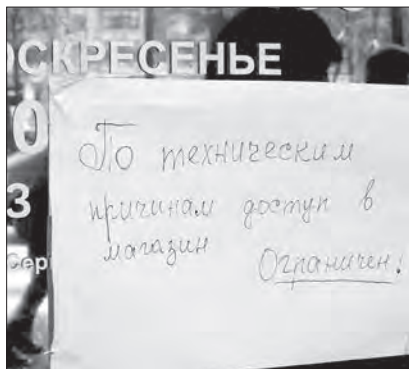 ОСКРЕСЕНЬЕ
0
3
Сер
По техническим
причинам доступ в
магазин
Ограничен!